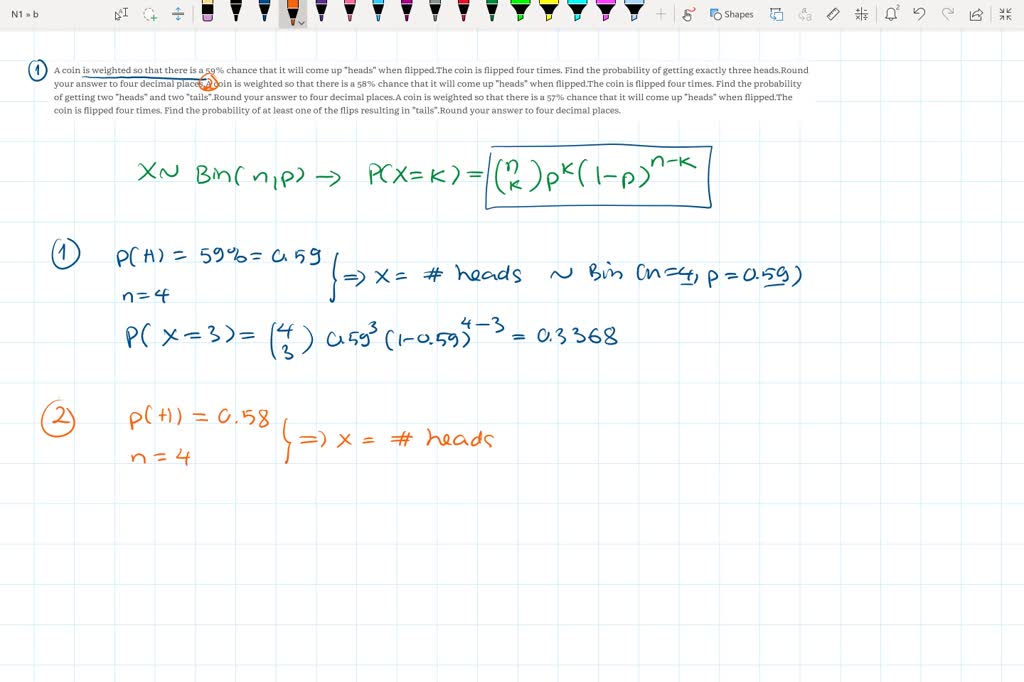 N1 » b
Shapes
2
① A coin is weighted so that there is a 59% chance that it will come up "heads" when flipped.The coin is flipped four times. Find the probability of getting exactly three heads.Round
your answer to four decimal places.A coin is weighted so that there is a 58% chance that it will come up "heads" when flipped.The coin is flipped four times. Find the probability
of getting two "heads" and two "tails".Round your answer to four decimal places.A coin is weighted so that there is a 57% chance that it will come up "heads" when flipped.The
coin is flipped four times. Find the probability of at least one of the flips resulting in "tails".Round your answer to four decimal places.
X~ Bin(n,p) → P(X=K) = (n K) p^K (1-p)^n-K
① P(H) = 59% = 0.59
n=4
} => X = # heads ~ Bin (n=4, p=0.59)
P( X=3) = (4 3) 0.59^3 (1-0.59)^4-3 = 0.3368
② P(H) = 0.58
n = 4
} => X = # heads